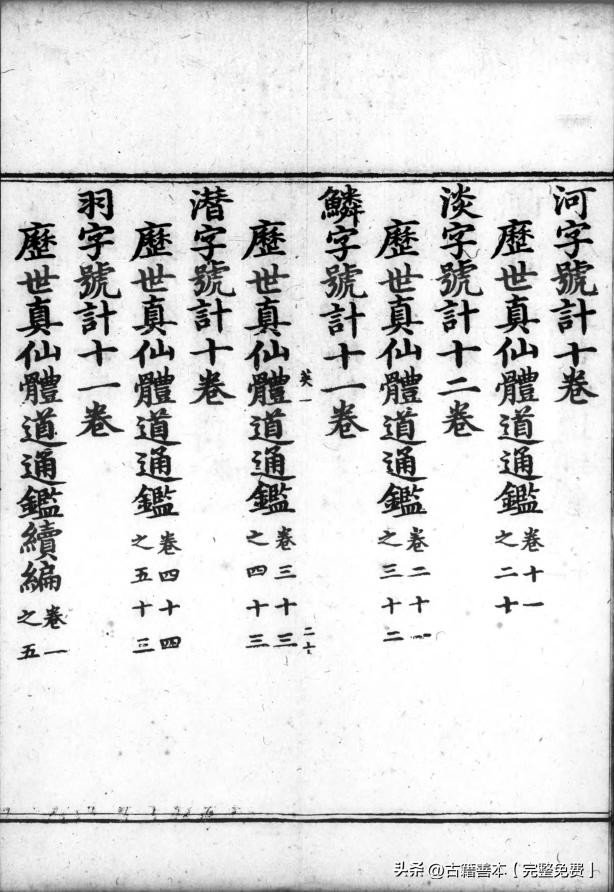 河字號計十卷
歷世真仙體道通鑑卷十一之二十
淡字號計十二卷
歷世真仙體道通鑑卷二十一之三十二
鱗字號計十一卷
英一
歷世真仙體道通鑑卷三十三之四十三
潜字號計十卷
歷世真仙體道通鑑卷四十四之五十三
羽字號計十一卷
歷世真仙體道通鑑續編卷一之五
头条@古籍善本【完整免费】